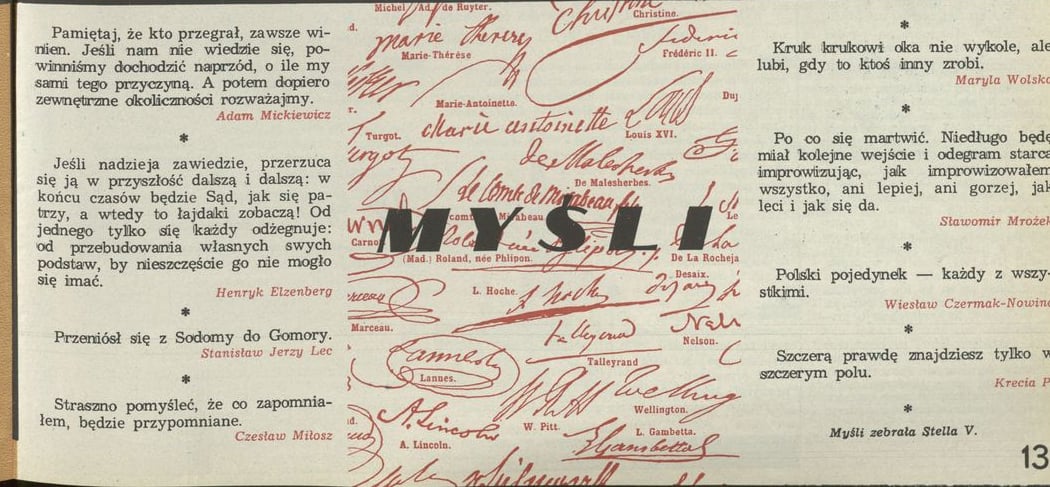 Pamiętaj, że kto przegrał, zawsze wi-
nien. Jeśli nam nie wiedzie się, po-
winniśmy dochodzić naprzód, o ile my
sami tego przyczyną. A potem dopiero
zewnętrzne okoliczności rozważajmy.
Adam Mickiewicz
*
Jeśli nadzieja zawiedzie, przerzuca
się ją w przyszłość dalszą i dalszą: w
końcu czasów będzie Sąd, jak się pa-
trzy, a wtedy to łajdaki zobaczą! Od
jednego tylko się każdy odżegnuje:
od przebudowania własnych swych
podstaw, by nieszczęście go nie mogło
się imać.
Henryk Elzenberg
*
Przeniósł się z Sodomy do Gomory.
Stanisław Jerzy Lec
*
Straszno pomyśleć, że co zapomnia-
łem, będzie przypomniane.
Czesław Miłosz
Michel Ad. de Ruyter.
Christine.
marie therese
Marie-Thérèse
Frédéric II.
Marie-Antoinette.
Turgot.
Marie antoinette
Louis XVI.
De Malesherbes.
MYŚLI
(Mad.) Roland, née Phlipon.
De La Rocheja
L. Hoche.
Desaix.
Marceau.
Nelson.
Talleyrand
Lannes.
Wellington.
W. Pitt.
L. Gambetta.
A. Lincoln
A. Lincoln.
*
Kruk krukowi oka nie wykole, ale
lubi, gdy to ktoś inny zrobi.
Maryla Wolska
*
Po co się martwić. Niedługo będę
miał kolejne wejście i odegram starca
improwizując, jak improwizowałem
wszystko, ani lepiej, ani gorzej, jak
leci i jak się da.
Sławomir Mrożek
*
Polski pojedynek — każdy z wszy-
stkimi.
Wiesław Czermak-Nowina
*
Szczerą prawdę znajdziesz tylko w
szczerym polu.
Krecia P
*
Myśli zebrała Stella V.
13